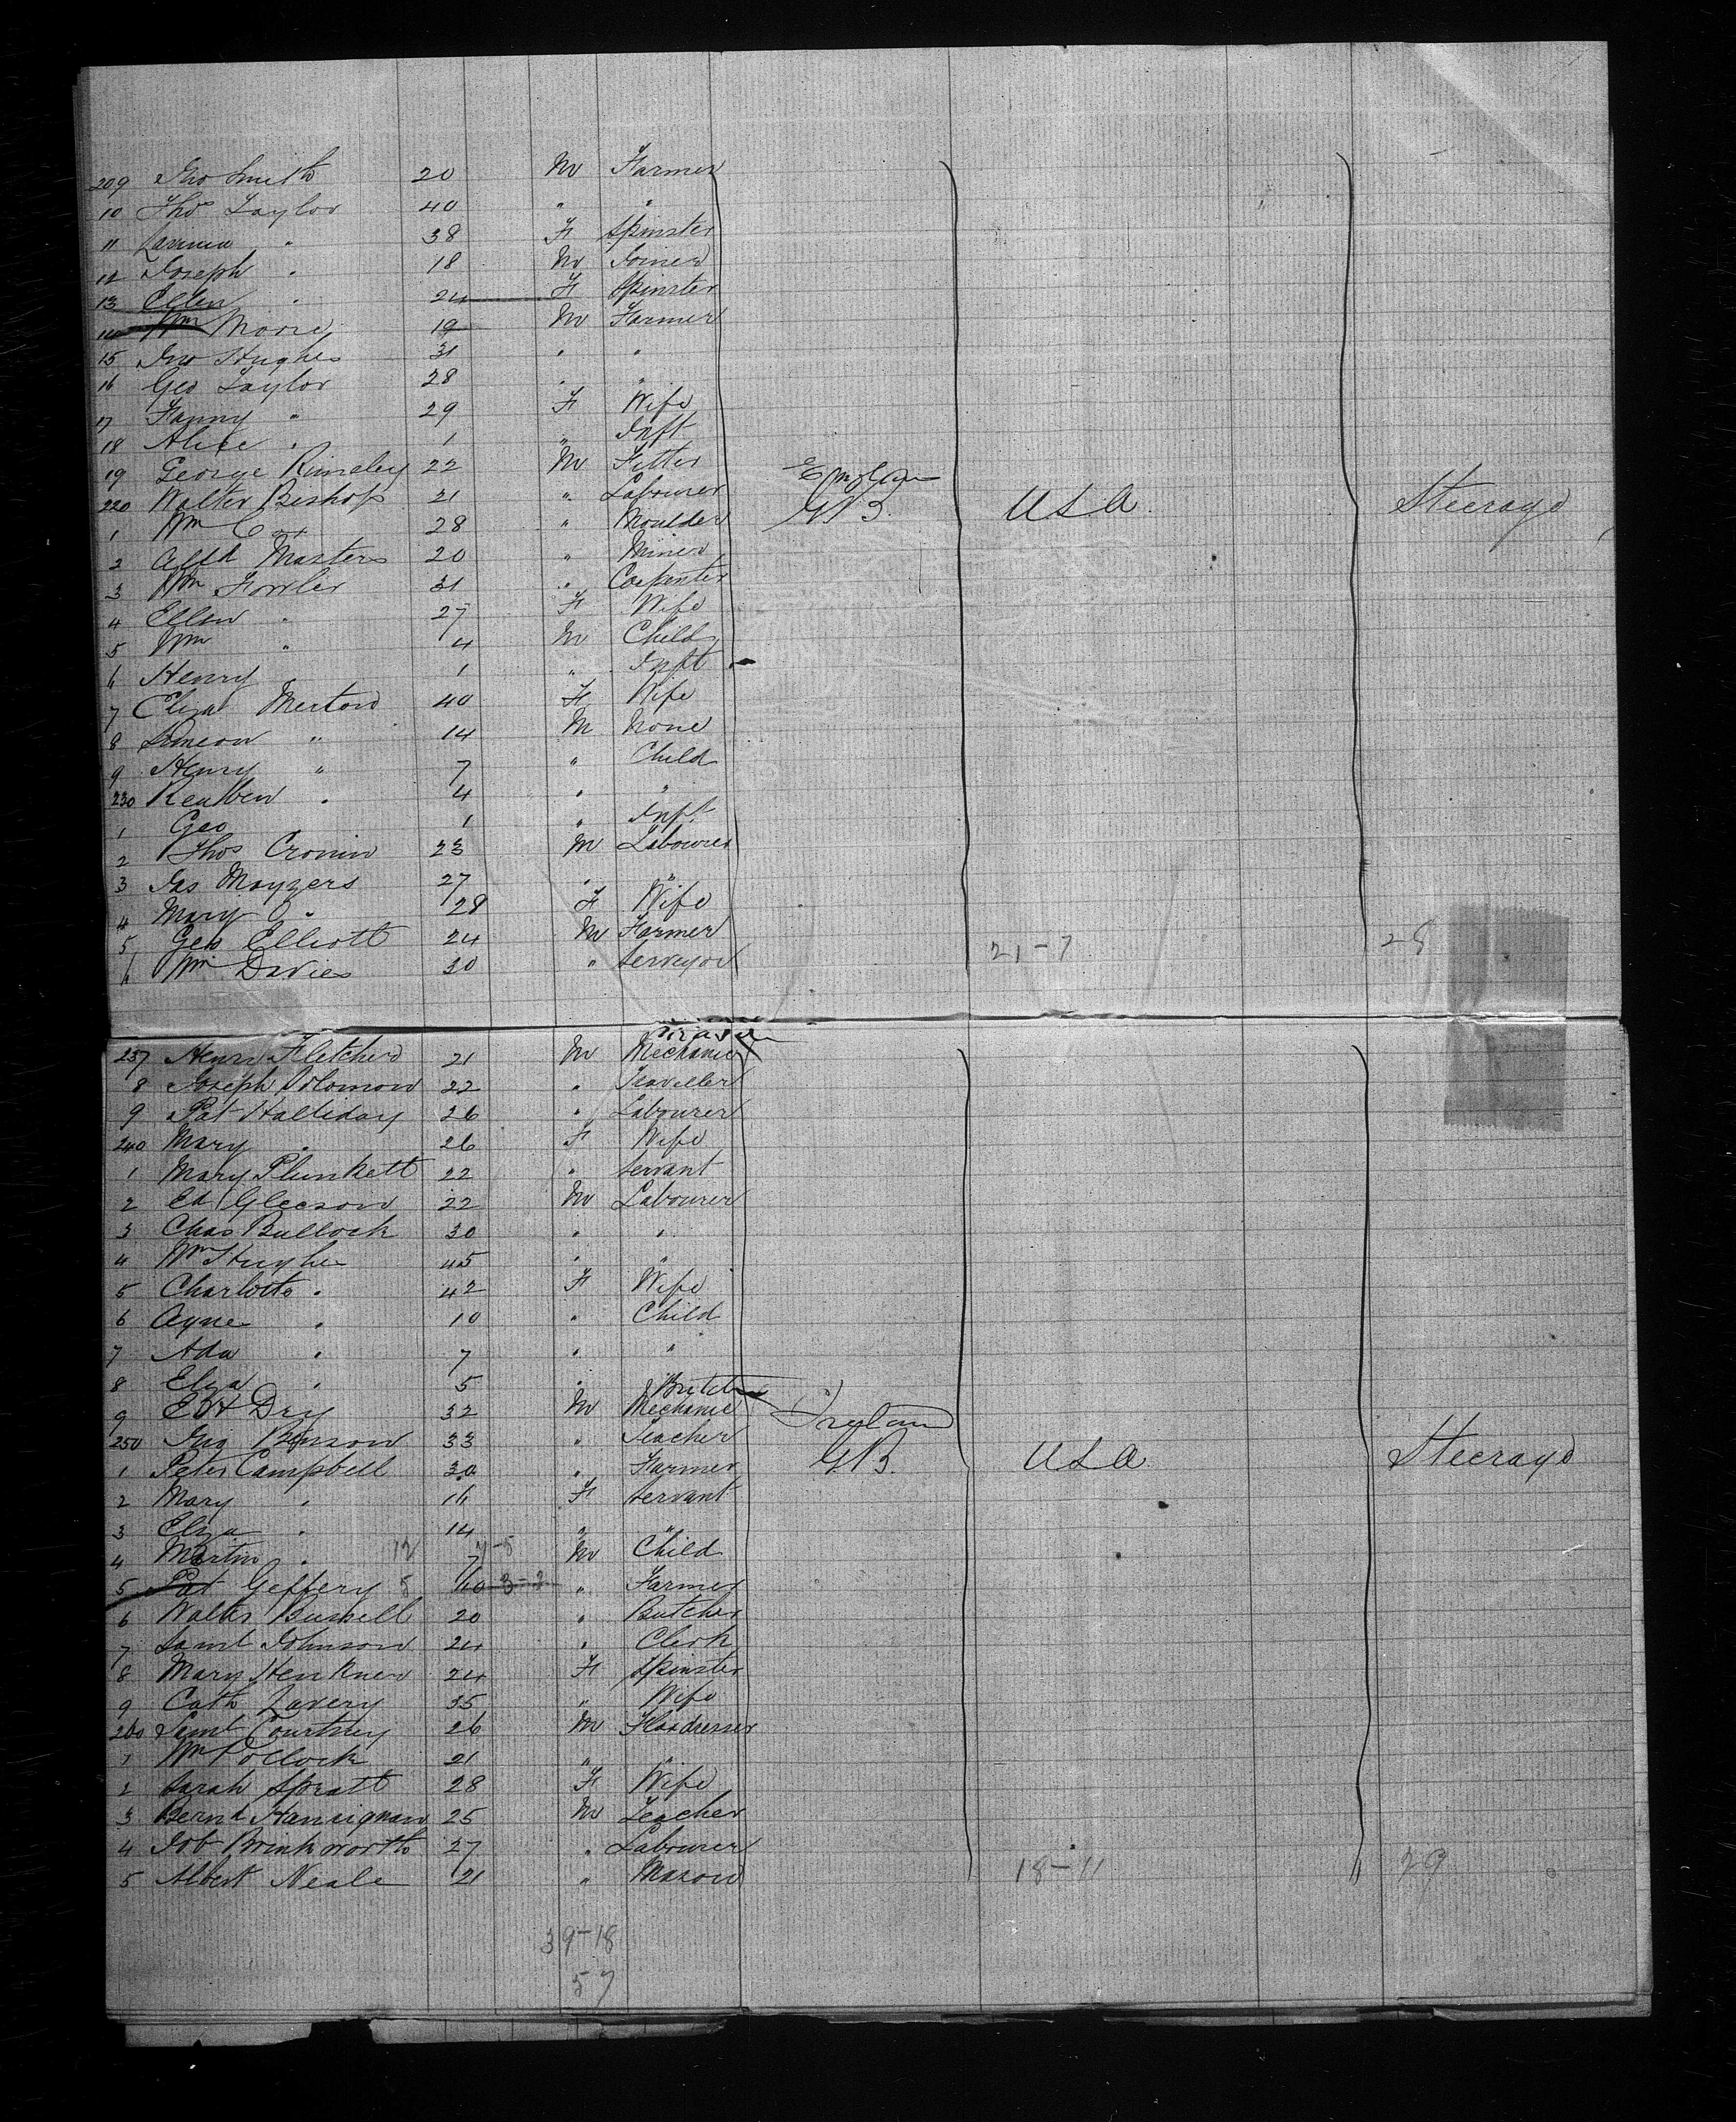 209 Jno Smith 20 M Farmer
10 Thos Taylor 40 " "
11 Lavinia " 38 F Spinster
12 Joseph " 18 M Joiner
13 Ellen " 24 F Spinster
14 Wm Moore 19 M Farmer
15 Jno Hughes 31 " "
16 Geo Taylor 28 " "
17 Fanny " 29 F Wife
18 Alice " 1 " Inft
19 George Rimsley 22 M Fitter
220 Walter Bishop 21 " Labourer England G B. U S A. Steerage
1 Wm Cox 28 " Moulder
2 Alfd Masters 20 " Miner
3 Wm Fowler 31 " Carpenter
4 Ellen " 27 F Wife
5 Wm " 4 M Child
6 Henry 1 " Inft
7 Eliza Merton 40 F Wife
8 Simeon " 14 M None
9 Henry " 7 " Child
230 Reuben " 4 " "
1 Geo 1 " Inft
2 Thos Cronin 23 M Labourer
3 Jas Mayzers 27 " "
4 Mary " 28 F Wife
5 Geo Elliott 24 M Farmer
6 Wm Davies 30 " Serveyor 21-7 28
237 Henry Fletcher 21 M Mechanic
8 Joseph Solomon 22 " Traveller
9 Pat Halliday 26 " Labourer
240 Mary " 26 F Wife
1 Mary Plunkett 22 " Servant
2 Ed Gleeson 22 M Labourer
3 Chas Bullock 30 " "
4 Wm Hughes 45 " "
5 Charlotte " 42 F Wife
6 Agnes " 10 " Child
7 Ada " 7 " "
8 Eliza " 5 "
9 E H Dry 32 M Butcher Mechanic
250 Benson 33 " Teacher Ireland
1 Peter Campbell 30 " Farmer G B. U S A. Steerage
2 Mary " 16 F Servant
3 Eliza " 14 " "
4 Martin " 12 7 M Child
5 Pat Geffery 8 60 3-2 " Farmer
6 Walter Bussell 20 " Butcher
7 Saml Johnson 24 " Clerk
8 Mary 24 F Spinster
9 Cath Lavery 35 " Wife
260 Saml Courtney 26 M Flaxdresser
1 Wm Pollock 21 " "
2 Sarah Spratt 28 F Wife
3 Bernd Hannignan 25 M Teacher
4 Job Brinkworth 27 " Labourer
5 Albert Neale 21 " Mason 18-11 29
39-18
57